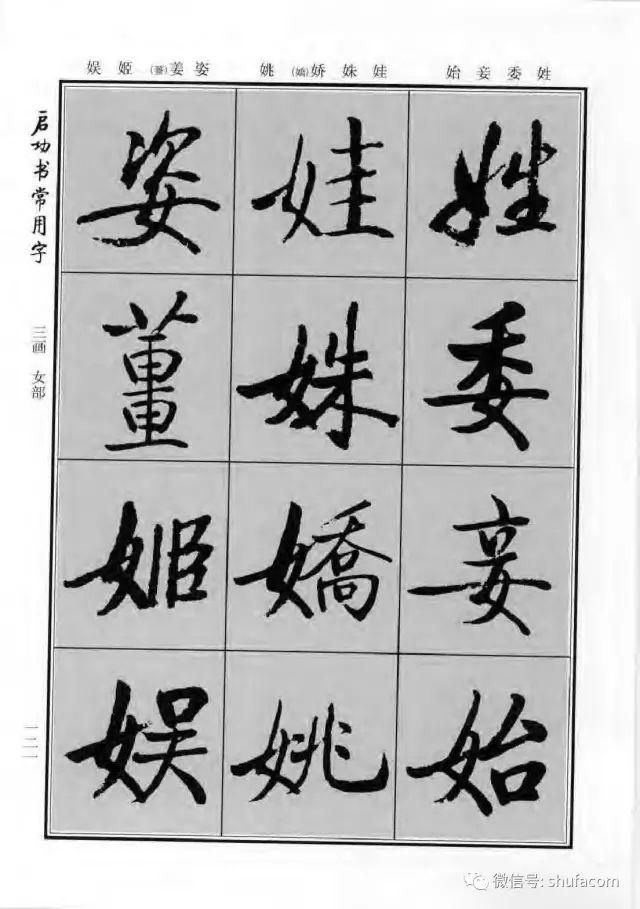 姓委妾始
娃姝娇(嬌)姚
姿姜(薑)姬娱
姓
委
妾
始
娃
姝
嬌
姚
姿
薑
姬
娱
启功书常用字
三画 女部
微信号: shufacom